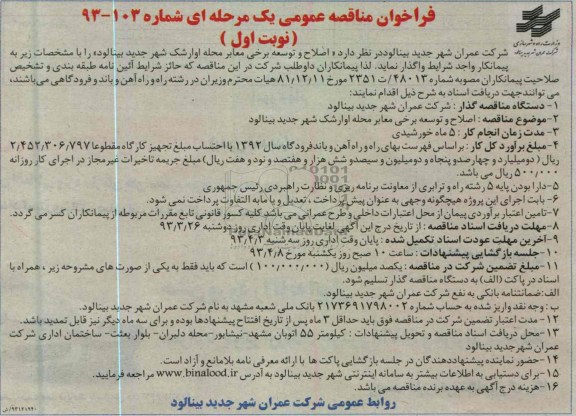 فراخوان مناقصه عمومی یک مرحله ای شماره ۱۰۳-۹۳
(نوبت اول)
شرکت عمران شهر جدید بینالود در نظر دارد « اصلاح و توسعه برخی معابر محله اوارشک شهر جدید بینالود» را با مشخصات زیر به
پیمانکار واجد شرایط واگذار نماید. لذا پیمانکاران داوطلب شرکت در این مناقصه که حائز شرایط آئین نامه طبقه بندی و تشخیص
صلاحیت پیمانکاران مصوبه شماره ۴۸۰۱۳/ت ۲۳۵۱ مورخ ۸۱/۱۲/۱۱ هیات محترم وزیران در رشته راه و راه آهن و باند و فرودگاهی می‌باشند،
می توانند جهت دریافت اسناد به شرح ذیل اقدام نمایند:
۱- دستگاه مناقصه گذار : شرکت عمران شهر جدید بینالود
۲- موضوع مناقصه : اصلاح و توسعه برخی معابر محله اوارشک شهر جدید بینالود
۳- مدت زمان انجام کار : ۵ ماه خورشیدی
۴- مبلغ برآورد کل کار : بر اساس فهرست بهای راه و راه آهن و باند فرودگاه سال ۱۳۹۲ با احتساب مبلغ تجهیز کارگاه مقطوعا ۲/۴۵۲/۳۰۶/۷۹۷
ریال ( دو میلیارد و چهارصدو پنجاه و دومیلیون و سیصدو شش هزار و هفتصد و نود و هفت ریال) مبلغ جریمه تاخیرات غیرمجاز در اجرای کار روزانه
۵۰۰/۰۰۰ ریال می باشد.
۵- دارا بودن پایه ۵ رشته راه و ترابری از معاونت برنامه ریزی و نظارت راهبردی رئیس جمهوری
۶- بابت اجرای این پروژه هیچگونه وجهی به عنوان پیش پرداخت، تعدیل و یا مابه التفاوت پرداخت نمی شود.
۷- تامین اعتبار برآوردی پیمان از محل اعتبارات داخلی و طرح عمرانی می باشد. کلیه کسور قانونی تابع مقررات مربوطه از پیمانکاران کسر می گردد.
۸- مهلت دریافت اسناد مناقصه : از تاریخ درج این آگهی لغایت پایان وقت اداری روز دوشنبه ۹۳/۳/۲۶
۹- آخرین مهلت عودت اسناد تکمیل شده : پایان وقت اداری روز سه شنبه ۹۳/۴/۳
۱۰- جلسه بازگشایی پیشنهادات : ساعت ۱۰ صبح روز یکشنبه مورخ ۹۳/۴/۸
۱۱- مبلغ تضمین شرکت در مناقصه : یکصد میلیون ریال (۱۰۰/۰۰۰/۰۰۰ ) است که باید فقط به یکی از صورت های مشروحه زیر، همراه با
اسناد در پاکت (الف) به دستگاه مناقصه گذار تسلیم شود.
الف:ضمانتنامه بانکی به نفع شرکت عمران شهر جدید بینالود.
ب: وجه نقد واریز شده به حساب شماره ۲۱۷۳۶۹۱۷۹۸۰۰۲ بانک ملی شعبه مشهد به نام شرکت عمران شهر جدید بینالود.
۱۲- مدت اعتبار تضمین شرکت در مناقصه فوق باید حداقل ۳ ماه پس از تاریخ افتتاح پیشنهادها بوده و برای سه ماه دیگر نیز قابل تمدید باشد.
۱۳- محل دریافت اسناد مناقصه و تحویل پیشنهادات : کیلومتر ۵۵ اتوبان مشهد-نیشابور- محله دلبران- بلوار بعثت- ساختمان اداری شرکت
عمران شهر جدید بینالود
۱۴- حضور نماینده پیشنهاددهندگان در جلسه بازگشایی پاکت ها با ارائه معرفی نامه بلامانع و آزاد است.
۱۵- برای دستیابی به اطلاعات بیشتر به سامانه اینترنتی شهر جدید بینالود به آدرس www.binalood.ir مراجعه فرمایید.
۱۶- هزینه درج آگهی به عهده برنده مناقصه می باشد.
روابط عمومی شرکت عمران شهر جدید بینالود